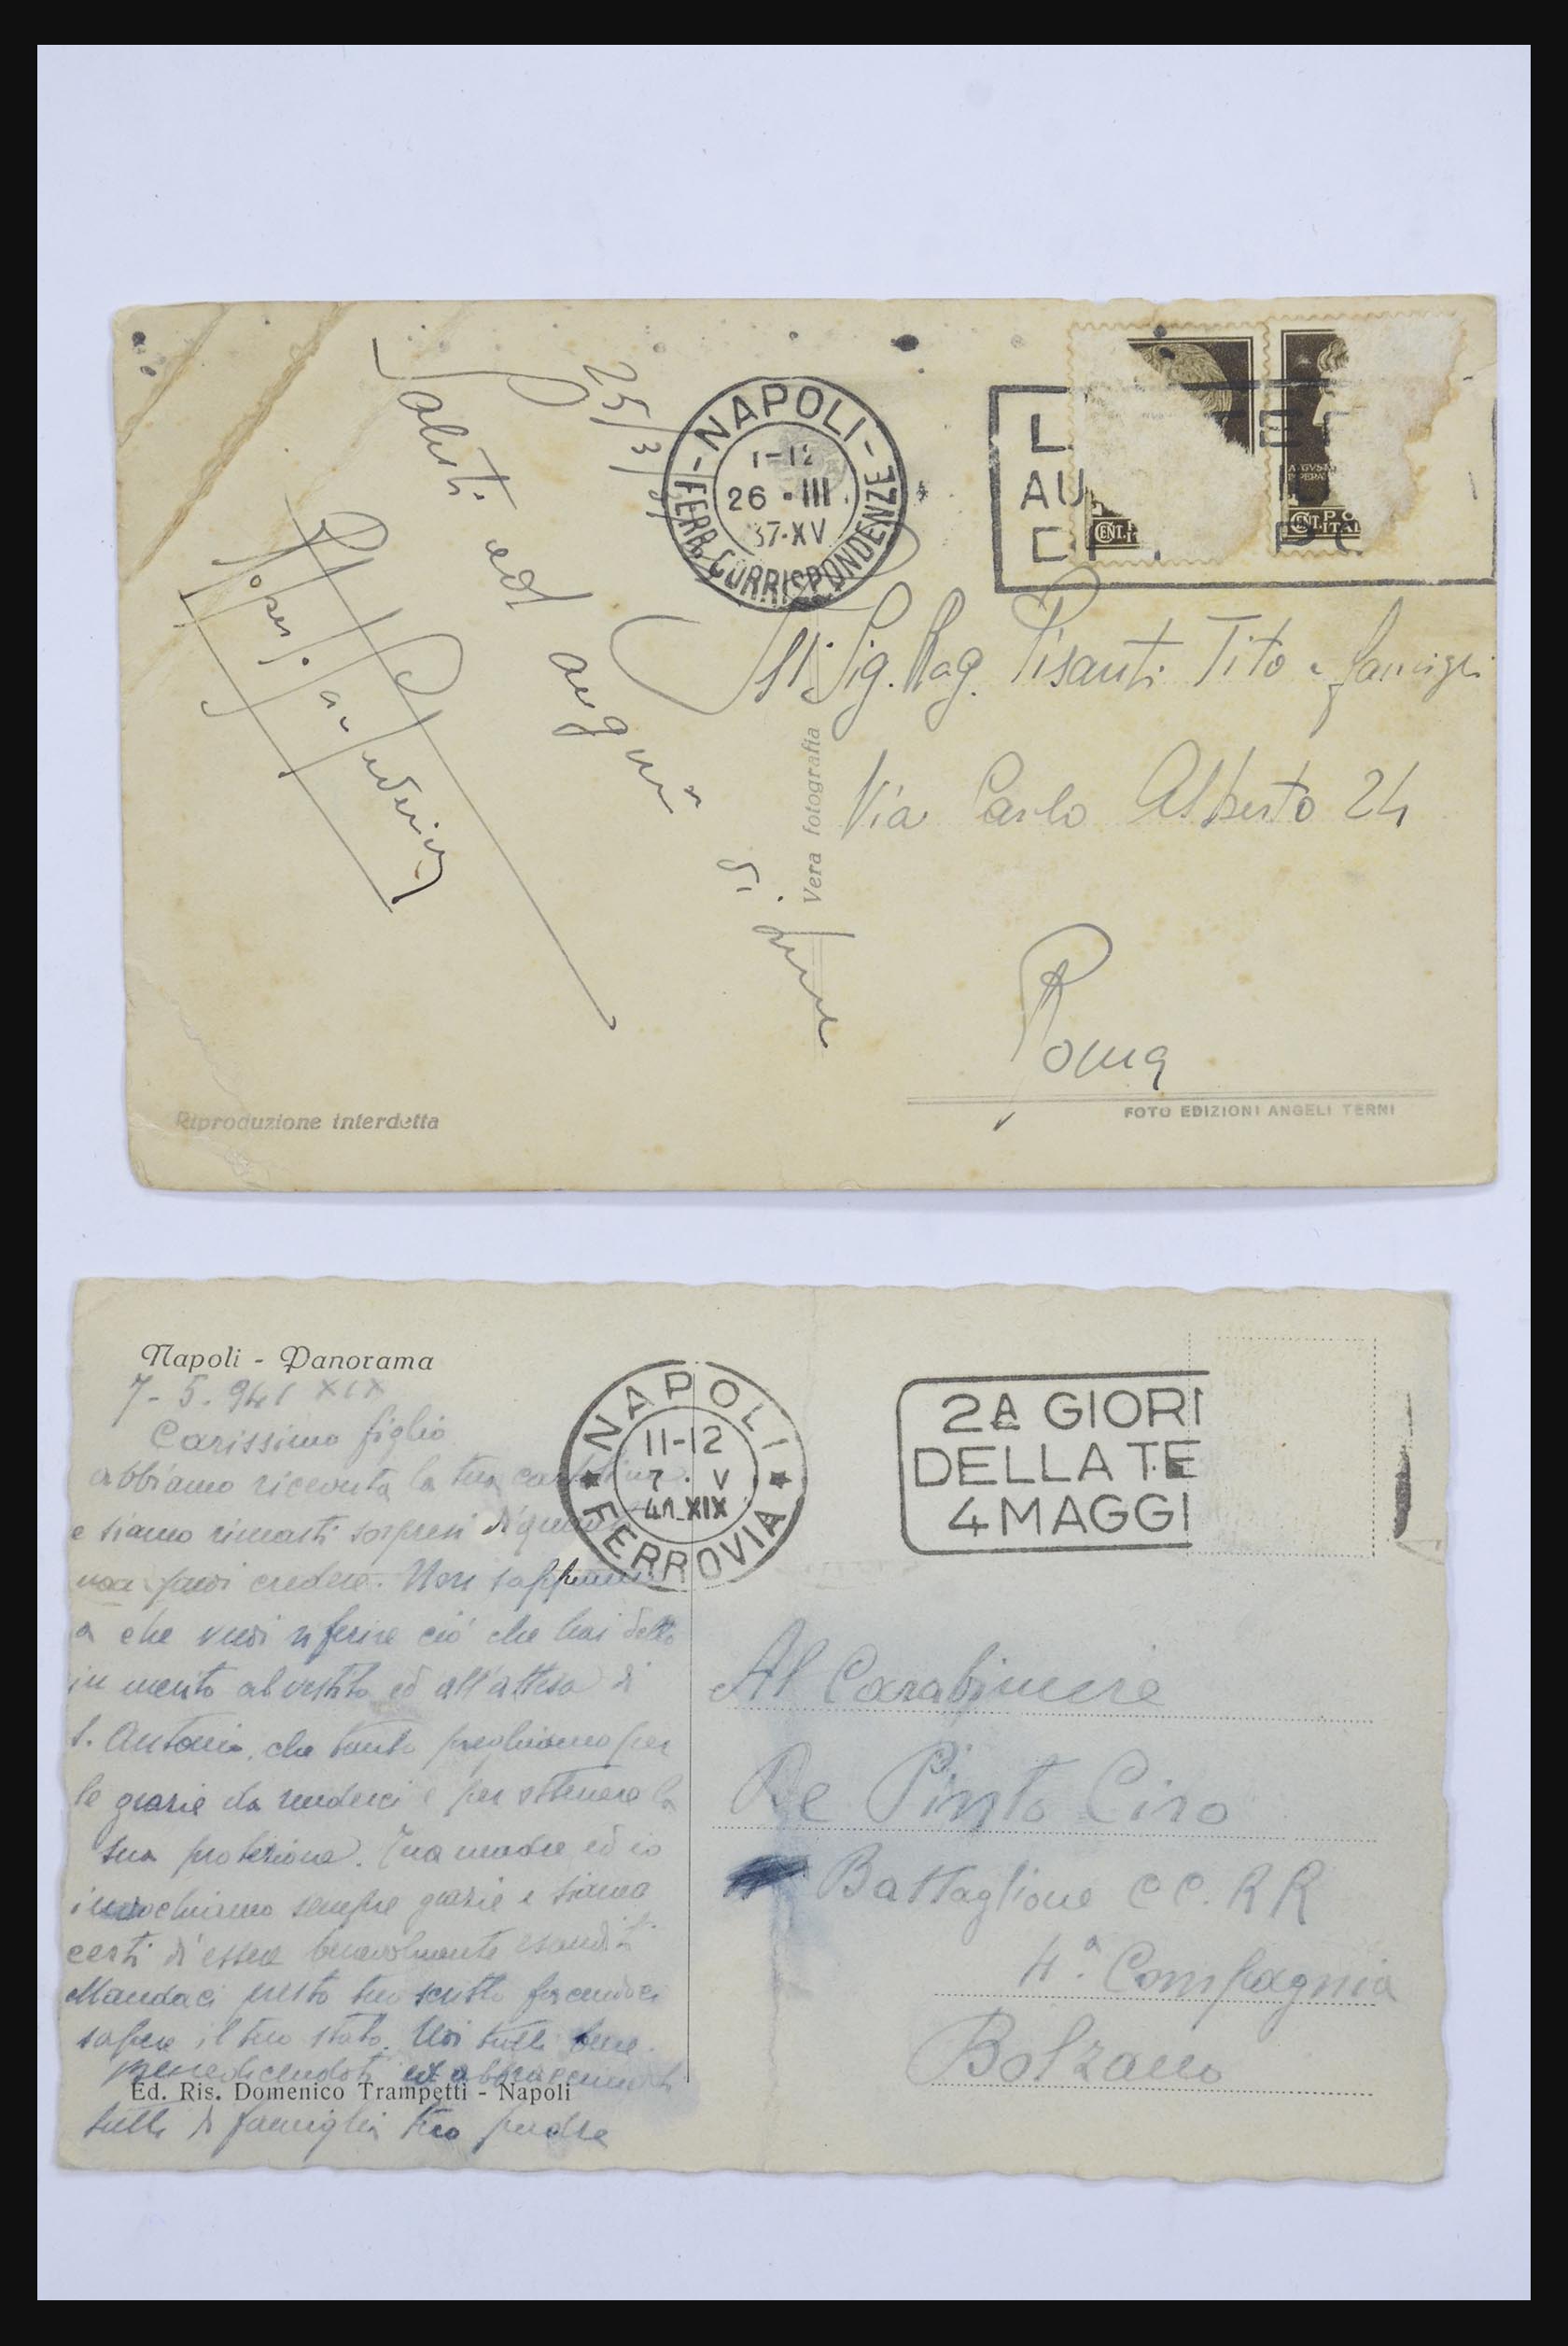 25/3/37
Saluti ed auguri
NAPOLI
1-12
26 · III
37·XV
FERR. CORRISPONDENZE
L
AU
CENT.
CENT.
Al Sig. Rag. Pisanti Tito e famigli
Via Carlo Alberto 24
Roma
Vera fotografia
Riproduzione interdetta
FOTO EDIZIONI ANGELI TERNI
Napoli - Panorama
7-5.941 XIX
Carissimo figlio
abbiamo ricevuta la tua cartolina
e siamo rimasti sorpresi di quanto
non puoi credere. Non sappiamo
a che vuoi riferire ciò che hai detto
in merito al vestito ed all'attesa di
S. Antonio, che tanto preghiamo per
le grazie da renderci e per ottenere la
sua protezione. Tua madre ed io
invochiamo sempre grazie e siamo
certi d'essere benevolmente esauditi
Mandaci presto tuo scritto facendoci
sapere il tuo stato. Noi tutti bene.
benedicendoti ed abbracciandoti
Ed. Ris. Domenico Trampetti - Napoli
tutti di famiglia tuo padre
NAPOLI
11-12
7 · V
41 XIX
FERROVIA
2A GIOR
DELLA TE
4 MAGGI
Al Carabiniere
De Pinto Ciro
Battaglione CC. RR
4.ª Compagnia
Bolzano